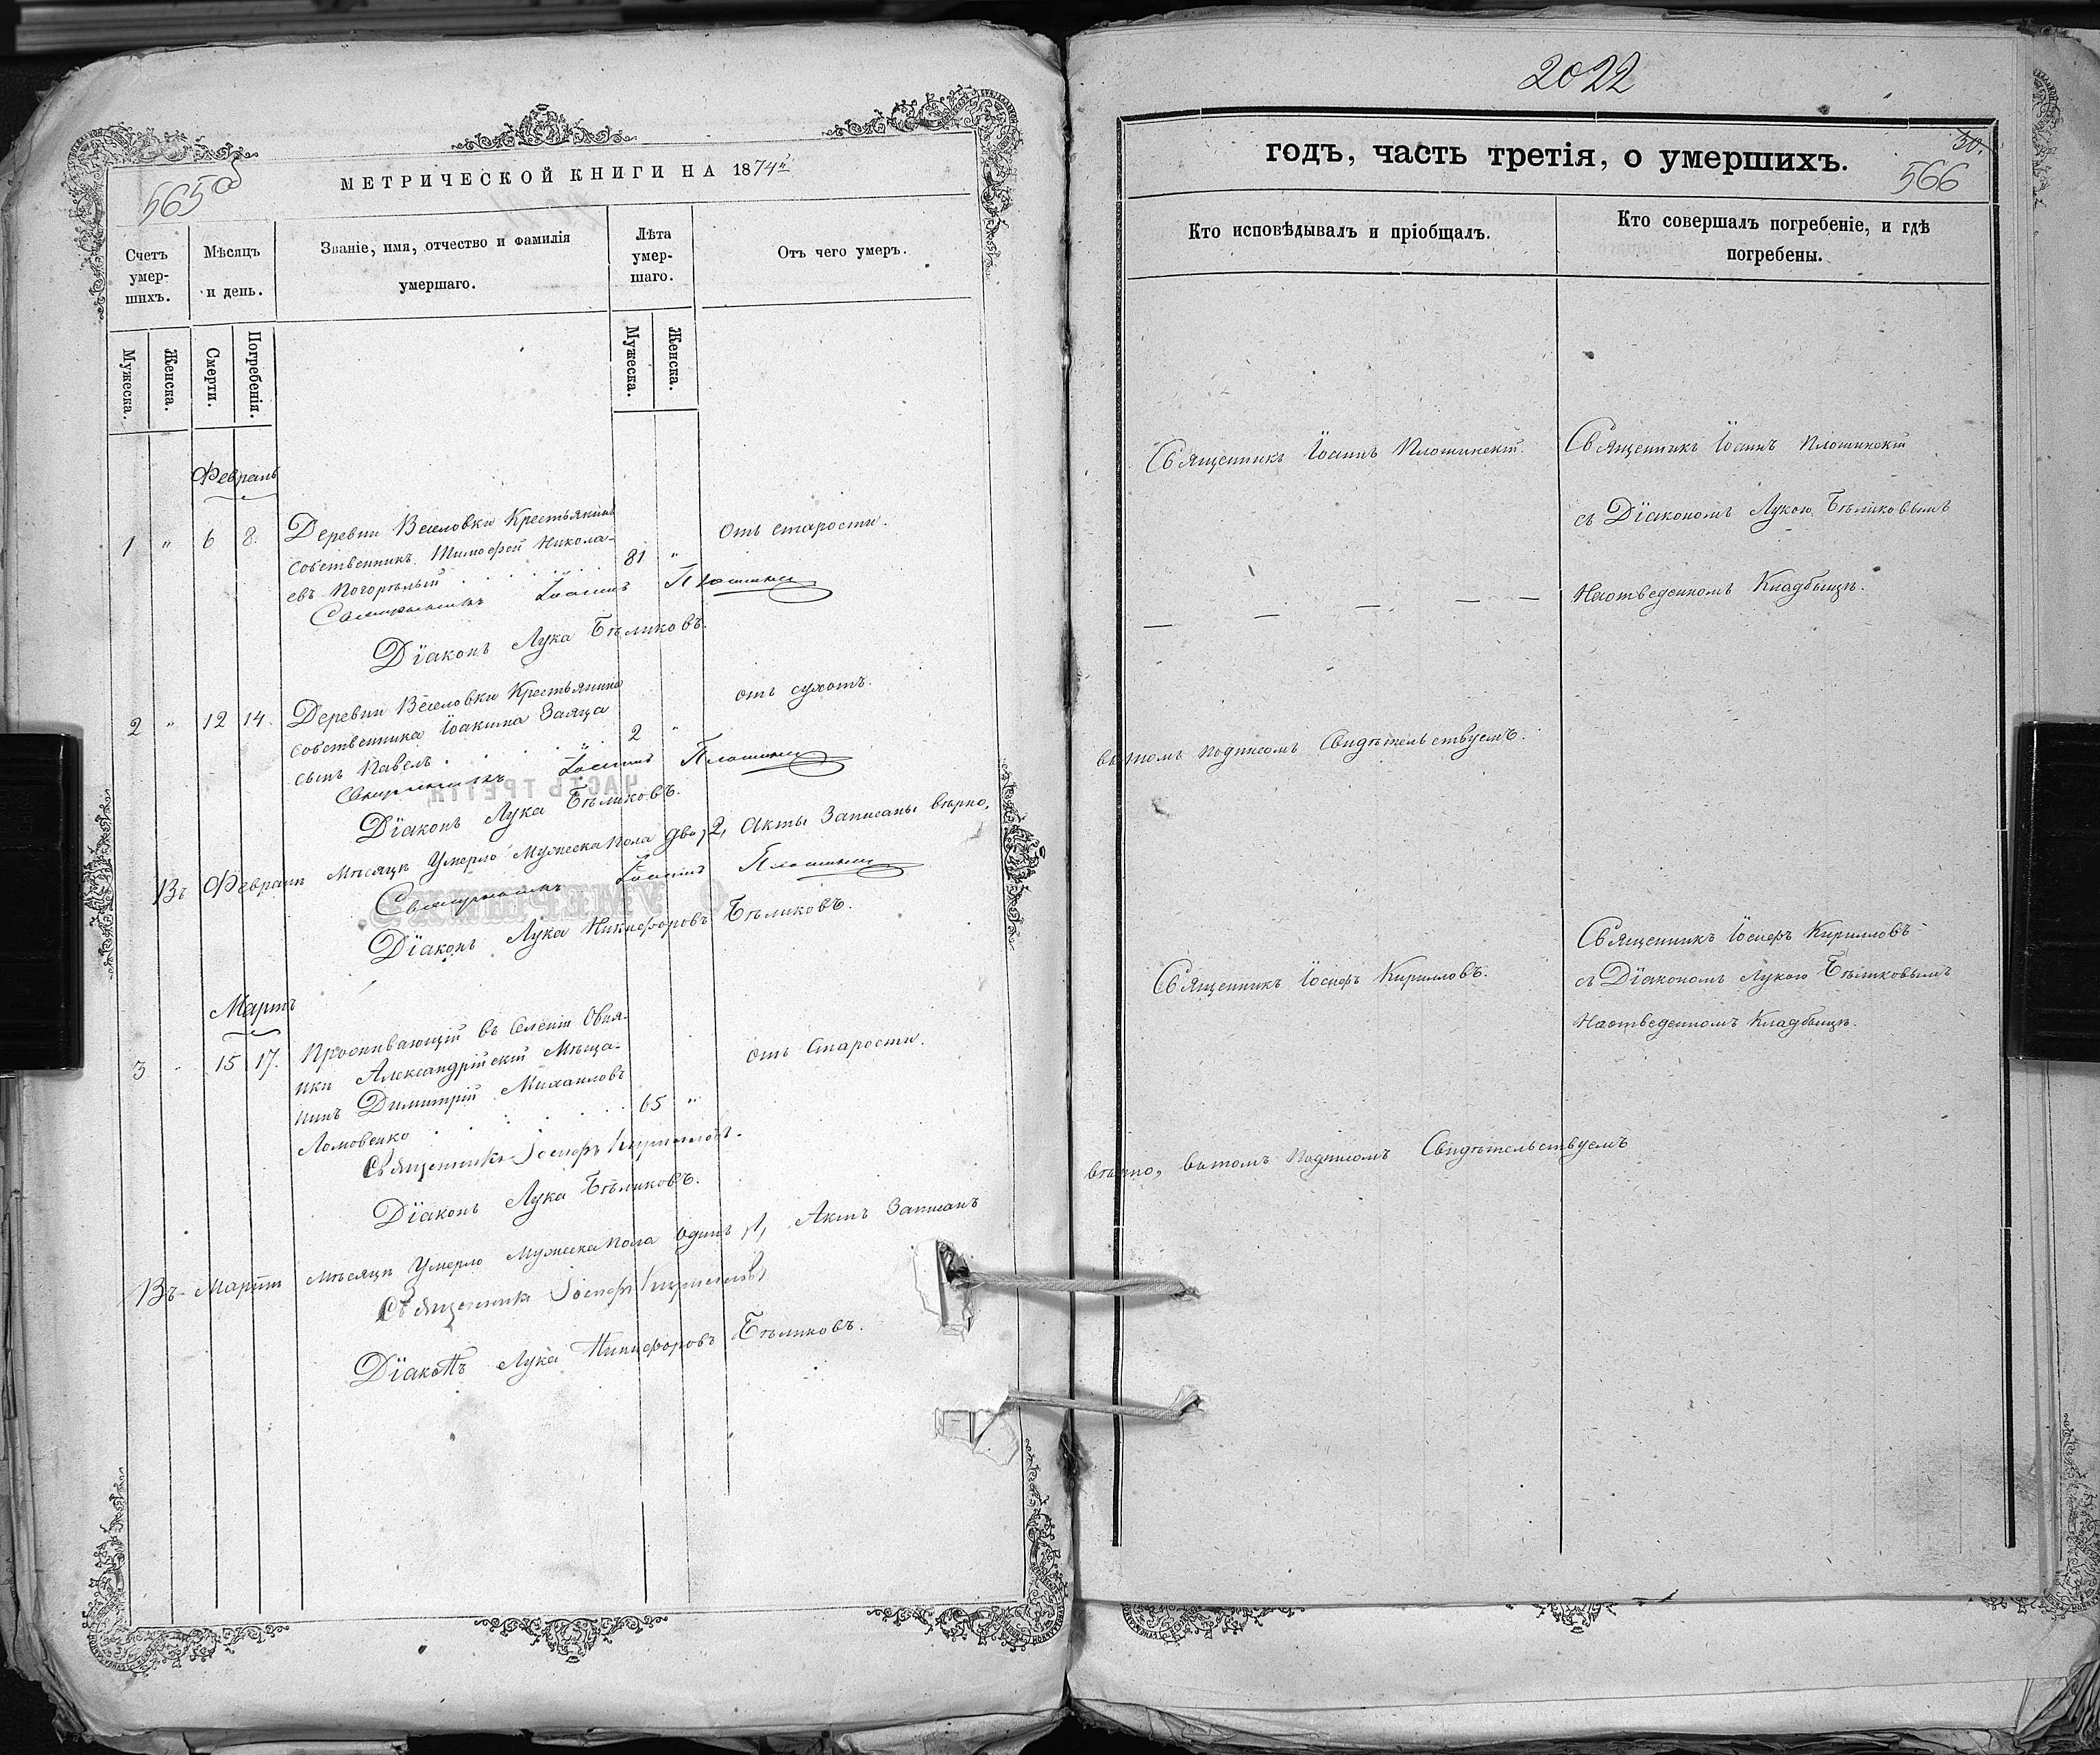 565 об
МЕТРИЧЕСКОЙ КНИГИ НА 1874й
Счетъ умер-шихъ.
Мѣсяцъ и день.
Званіе, имя, отчество и фамилія умершаго.
Лѣта умер-шаго.
Отъ чего умеръ.
Мужеска.
Женска.
Смерти.
Погребенія.
Мужеска.
Женска.
Февраль
1 " 6 8. Деревни Веселовки Крестьянинъ
собственникъ Тимофей Никола-
евъ Погорѣлый 81 " Отъ старости.
Священникъ Іоаннъ
Діаконъ Лука Бѣликовъ.
2 " 12 14. Деревни Веселовки Крестьянина
собственника Іоакима Заяца
сынъ Павелъ 2 " отъ сухотъ.
Священникъ Іоаннъ
Діаконъ Лука Бѣликовъ.
Въ Февралѣ мѣсяцѣ Умерло Мужеска пола два, 2, Акты Записаны вѣрно,
Священникъ Іоаннъ
Діаконъ Лука Никифоровъ Бѣликовъ.
Мартъ
3 15 17. Проживающій въ Селеніи Овня-
нки Александрійскій Мѣща-
нинъ Димитрій Михаиловъ
Ломовенко 65 " отъ Старости.
Священникъ Іосифъ Кирилловъ.
Діаконъ Лука Бѣликовъ.
Въ Мартѣ мѣсяцѣ Умерло Мужеска пола одинъ, 1, Актъ Записанъ
Священникъ Іосифъ Кирилловъ
Діаконъ Лука Никифоровъ Бѣликовъ.
2022
50.
годъ, часть третія, о умершихъ.
566
Кто исповѣдывалъ и пріобщалъ.
Кто совершалъ погребеніе, и гдѣ погребены.
Священникъ Іоаннъ Плошинскій.
Священникъ Іоаннъ Плошинскій
съ Діакономъ Лукою Бѣликовымъ
На отведенномъ Кладбищѣ.
въ томъ подписомъ Свидѣтельствуемъ.
Священникъ Іосифъ Кирилловъ.
Священникъ Іосифъ Кирилловъ
съ Діакономъ Лукою Бѣликовымъ
На отведенномъ Кладбищѣ.
вѣрно, въ томъ Подписомъ Свидѣтельствуемъ